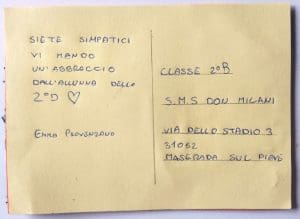 SIETE SIMPATICI
VI MANDO
UN'ABBRACCIO
DALL'ALUNNA DELLA
2°D ♡
EMMA PROVENZANO
CLASSE 2°B
S.M.S DON MILANI
VIA DELLO STADIO 3
31052
MASERADA SUL PIAVE